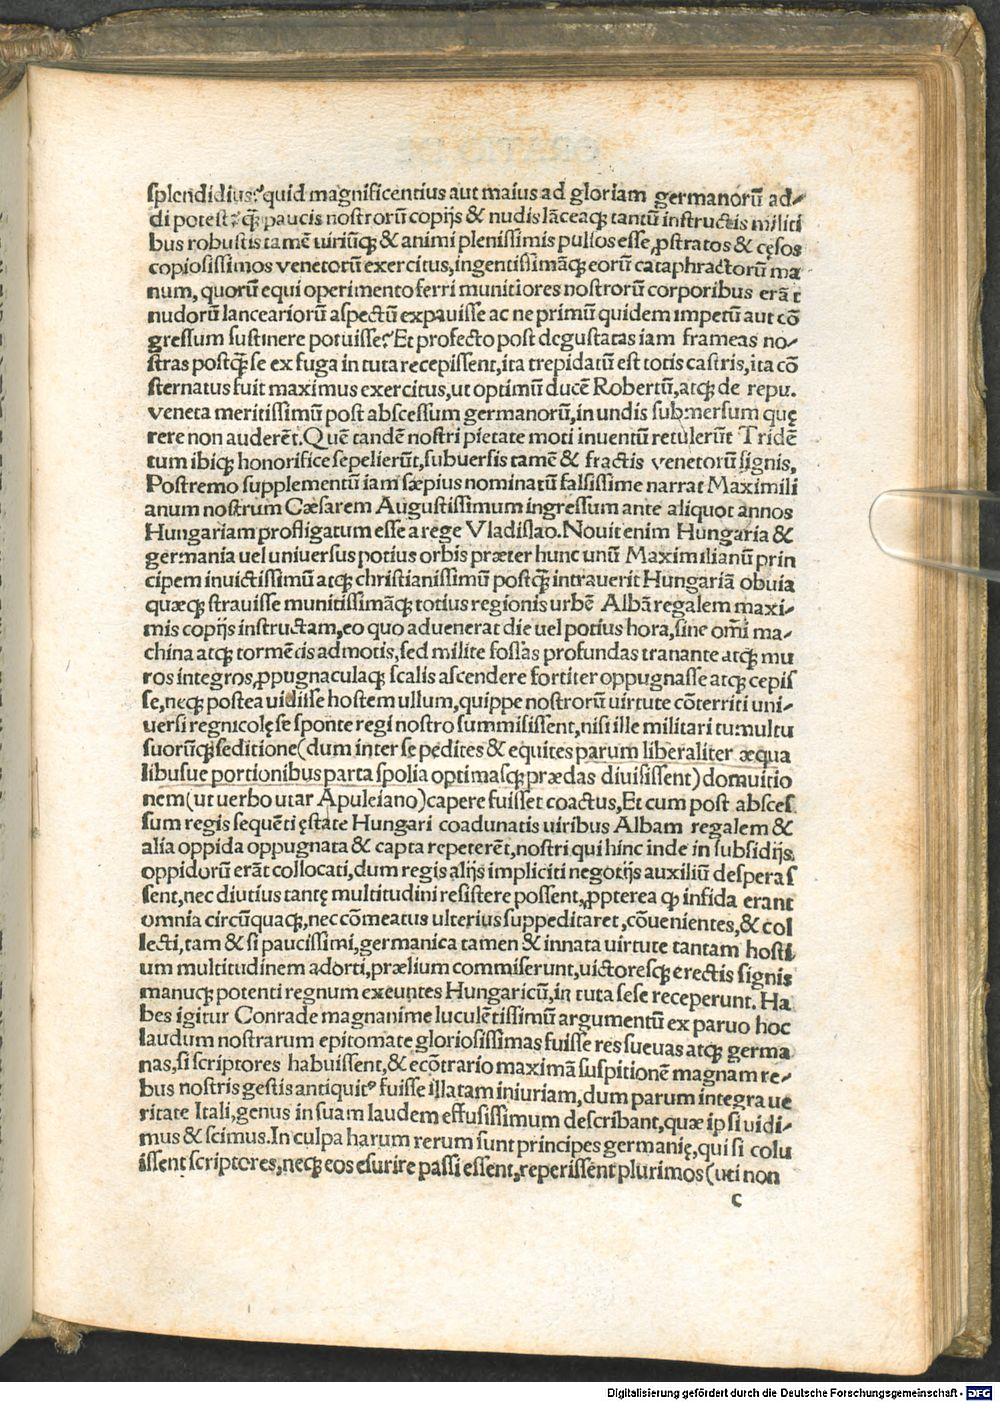 splendidius?quid magnificentius aut maius ad gloriam germanorū ad-
di potest?q̄ȝ paucis nostrorū copijs & nudis lāceaqȝ tantū instructis militi
bus robustis tamē uiriūqȝ & animi plenissimis pulsos esse,ꝓstratos & cęsos
copiosissimos venetorū exercitus,ingentissimāqȝ eorū cataphractorū ma
num, quorū equi operimento ferri munitiores nostrorū corporibus erāt
nudorū lanceariorū aspectū expauisse ac ne primū quidem impetū aut cō
gressum sustinere potuisse?Et profecto post degustatas iam frameas no-
stras postq̄ȝ se ex fuga in tuta recepissent,ita trepidatū est totis castris,ita cō
sternatus fuit maximus exercitus,ut optimū ducē Robertū,atqȝ de repu.
veneta meritissimū post abscessum germanorū,in undis submersum quę
rere non auderēt.Quē tandē nostri pietate moti inuentū retulerūt Tridē
tum ibiqȝ honorifice sepelierūt,subuersis tamē & fractis venetorū signis,
Postremo supplementū iam sæpius nominatū falsissime narrat Maximili
anum nostrum Cæsarem Augustissimum ingressum ante aliquot annos
Hungariam profligatum esse a rege Vladislao.Nouit enim Hungaria &
germania uel uniuersus potius orbis præter hunc unū Maximilianū prin
cipem inuictissimū atqȝ christianissimū postq̄ȝ intrauerit Hungariā obuia
quæqȝ strauisse munitissimāqȝ totius regionis urbē Albā regalem maxi-
mis copijs instructam,eo quo aduenerat die uel potius hora,sine om̄i ma-
china atqȝ tormētis admotis,sed milite fossas profundas tranante atqȝ mu
ros integros,ꝓpugnaculaqȝ scalis ascendere fortiter oppugnasse atqȝ cepis
se,neqȝ postea uidisse hostem ullum,quippe nostrorū uirtute cōterriti uni-
uersi regnicolę se sponte regi nostro summisissent,nisi ille militari tumultu
suorūqȝ seditione(dum inter se pedites & equites parum liberaliter æqua
libusue portionibus parta spolia optimasqȝ prædas diuisissent)domuitio
nem(ut uerbo utar Apuleiano)capere fuisset coactus,Et cum post absces
sum regis sequēti ęstate Hungari coadunatis uiribus Albam regalem &
alia oppida oppugnata & capta repeterēt,nostri qui hinc inde in subsidijs
oppidorū erāt collocati,dum regis alijs impliciti negotijs auxiliū desperas
sent,nec diutius tantę multitudini resistere possent,ꝓpterea ꝙ infida erant
omnia circūquaqȝ,nec cōmeatus ulterius suppeditaret,cōuenientes,& col
lecti,tam & si paucissimi,germanica tamen & innata uirtute tantam hosti
um multitudinem adorti,prælium commiserunt,uictoresqȝ erectis signis
manuqȝ potenti regnum exeuntes Hungaricū,in tuta sese receperunt. Ha
bes igitur Conrade magnanime luculētissimū argumentū ex paruo hoc
laudum nostrarum epitomate gloriosissimas fuisse res sueuas atqȝ germa
nas,si scriptores habuissent,& ecōtrario maximā suspitionē magnam re-
bus nostris gestis antiquitꝰ fuisse illatam iniuriam,dum parum integra ue
ritate Itali,genus in suam laudem effusissimum describant,quæ ipsi uidi-
mus & scimus.In culpa harum rerum sunt principes germanię,qui si colu
issent scriptores,neqȝ eos esurire passi essent,reperissent plurimos(uti non
c
Digitalisierung gefördert durch die Deutsche Forschungsgemeinschaft - DFG